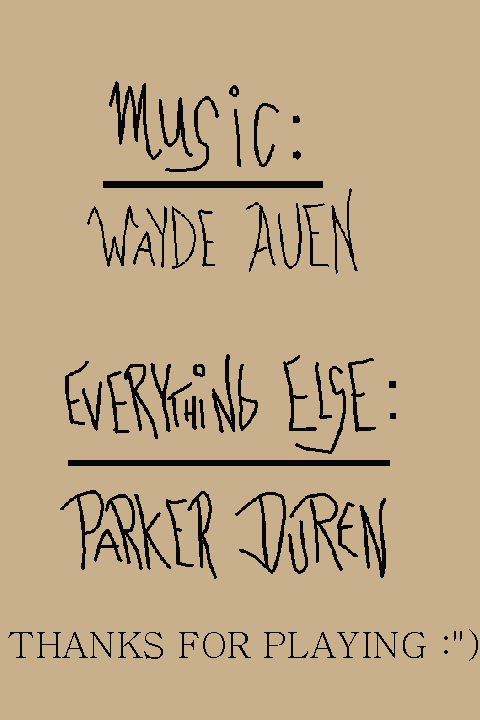 Music:
WAYDE AUEN
EVERYTHiNG ELSE:
PARKER DUREN
THANKS FOR PLAYING :")